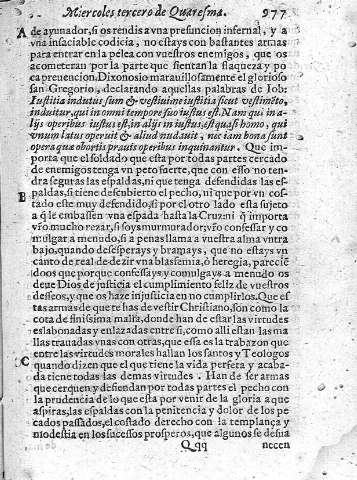 Miercoles tercero de Quaresma. 977
A de ayunador, si os rendis a vna presuncion infernal, y a
vna insaciable codicia, no estays con bastantes armas
para entrar en la pelea con vuestros enemigos, que os
acometeran por la parte que sientan la flaqueza y po
ca preuencion. Dixonoslo marauillosamente el glorioso
san Gregorio, declarando aquellas palabras de Iob:
Iustitia indutus sum & vestiui me iustitia sicut vestimēto,
induitur, qui in omni tempore suo iustus est. Nam qui in a-
lijs operibus iustus est, in alijs iniustus, est quasi homo, qui
vnum latus operuit & aliud nudauit, nec iam bona sunt
opera quæ obortis prauis operibus inquinantur. Que im-
porta que el soldado que esta por todas partes cercado
de enemigos tenga vn peto fuerte, que con esso no ten
dra seguras las espaldas, ni que tenga defendidas las es-
B paldas, si tiene descubierto el pecho, ni que por vn cos-
tado este muy defendido, si por el otro lado esta sujeto
a q̃ le embassen vna espada hasta la Cruz ni q̃ importa
vr̃o mucho rezar, si soys murmurador; vr̃o confessar y co
mulgar a menudo, si a penas llama a vuestra alma vn tra
bajo, quando desesperays y bramays, que no estays vn
canto de real de dezir vna blasfemia, ò heregia, pareciē
doos que porque confessays y comulgays a menudo os
deue Dios de justicia el cumplimiento feliz de vuestros
desseos, y que os haze injusticia en no cumplirlos. Que es
tas armas de que te has de vestir Christiano, son como la
cota de finissima malla, donde han de estar las virtudes
eslabonadas y enlazadas entre si, como alli estan las ma
llas trauadas vnas con otras, que essa es la trabazon que
entre las virtudes morales hallan los santos y Teologos
C quando dizen que el que tiene la vna perfeta y acaba-
da tiene todas las demas virtudes. Han de ser armas
que cerquen y defiendan por todas partes el pecho con
la prudencia de lo que esta por venir de la gloria a que
aspiras, las espaldas con la penitencia y dolor de los pe
cados passados, el costado derecho con la templança y
modestia en los sucessos prosperos, que algunos se desua
Qqq necen